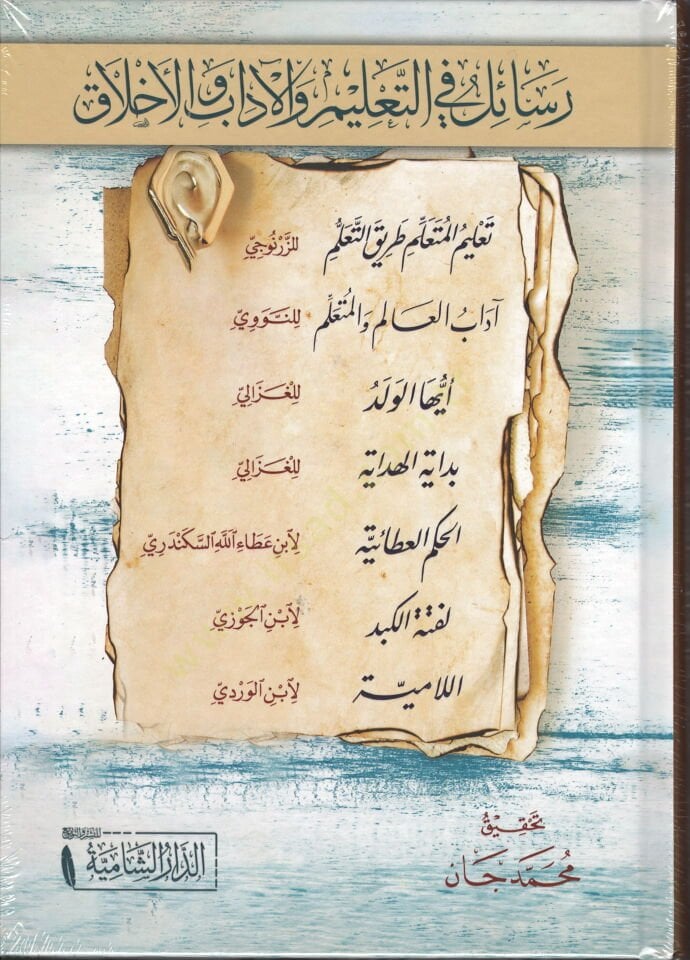 رَسَائِلُ فِي التَّعْلِيمِ وَالْآدَابِ وَالْأَخْلَاقِ
تَعْلِيمُ المُتَعَلِّمِ طَرِيقَ التَّعَلُّمِ لِلزَّرْنُوجِيِّ
آدَابُ العَالِمِ وَالمُتَعَلِّمِ لِلنَّوَوِيِّ
أَيُّهَا الوَلَدُ لِلْغَزَالِيِّ
بداية الهداية لِلْغَزَالِيِّ
الحكم العطائية لِابْنِ عَطَاءِ اللَّهِ السَّكَنْدَرِيِّ
لفتة الكبد لِابْنِ الجَوْزِيِّ
اللامية لِابْنِ الوَرْدِيِّ
تَحْقِيقُ
مُحَمَّد جَان
للنشر والتوزيع
الدَّارُ الشَّامِيَّةُ